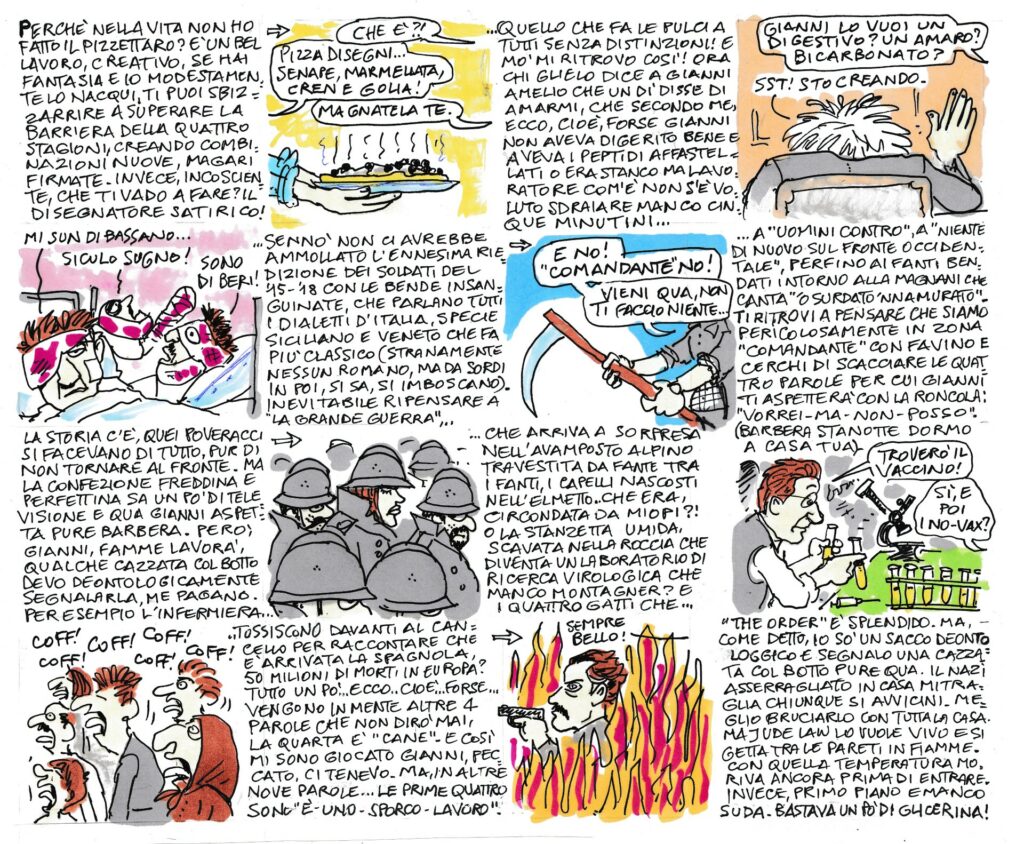 PERCHÈ NELLA VITA NON HO
FATTO IL PIZZETTARO? È UN BEL
LAVORO, CREATIVO, SE HAI
FANTASIA E IO MODESTAMEN-
TE LO NACQUI, TI PUOI SBIZ-
ZARRIRE A SUPERARE LA
BARRIERA DELLA QUATTRO
STAGIONI, CREANDO COMBI-
NAZIONI NUOVE, MAGARI
FIRMATE. INVECE, INCOSCIEN-
TE, CHE TI VADO A FARE? IL
DISEGNATORE SATIRICO!
CHE È?!
PIZZA DISEGNI...
SENAPE, MARMELLATA,
CREN E GOLIA!
MAGNATELA TE.
...QUELLO CHE FA LE PULCI A
TUTTI SENZA DISTINZIONI! E
MO' MI RITROVO COSI'! ORA
CHI GLIELO DICE A GIANNI
AMELIO CHE UN DI' DISSE DI
AMARMI, CHE SECONDO ME,
ECCO, CIOÈ, FORSE GIANNI
NON AVEVA DIGERITO BENE E
AVEVA I PEPTIDI AFFASTEL-
LATI O ERA STANCO MA LAVO-
RATORE COM'È NON S'È VO-
LUTO SDRAIARE MANCO CIN-
QUE MINUTINI...
GIANNI, LO VUOI UN
DIGESTIVO? UN AMARO?
BICARBONATO?
SST! STO CREANDO.
MI SUN DI BASSANO...
SICULO SUGNO!
SONO
DI BERI!
...SENNÒ NON CI AVREBBE
AMMOLLATO L'ENNESIMA RIE-
DIZIONE DEI SOLDATI DEL
'15-'18 CON LE BENDE INSAN-
GUINATE, CHE PARLANO TUTTI
I DIALETTI D'ITALIA, SPECIE
SICILIANO E VENETO CHE FA
PIÙ CLASSICO (STRANAMENTE
NESSUN ROMANO, MA DA SORDI
IN POI, SI SA, SI IMBOSCANO).
INEVITABILE RIPENSARE A
"LA GRANDE GUERRA",..
E NO!
"COMANDANTE" NO!
VIENI QUA, NON
TI FACCIO NIENTE...
... A "UOMINI CONTRO", A "NIENTE
DI NUOVO SUL FRONTE OCCIDEN-
TALE", PERFINO AI FANTI BEN-
DATI INTORNO ALLA MAGNANI CHE
CANTA "'O SURDATO 'NNAMURATO".
TI RITROVI A PENSARE CHE SIAMO
PERICOLOSAMENTE IN ZONA
"COMANDANTE" CON FAVINO E
CERCHI DI SCACCIARE LE QUAT-
TRO PAROLE PER CUI GIANNI
TI ASPETTERÀ CON LA RONCOLA:
"VORREI-MA-NON-POSSO".
(BARBERA STANOTTE DORMO
A CASA TUA)
LA STORIA C'È, QUEI POVERACCI
SI FACEVANO DI TUTTO, PUR DI
NON TORNARE AL FRONTE. MA
LA CONFEZIONE FREDDINA E
PERFETTINA SA UN PO' DI TELE
VISIONE E QUA GIANNI ASPET-
TA PURE BARBERA. PERÒ,
GIANNI, FAMME LAVORA',
QUALCHE CAZZATA COL BOTTO
DEVO DEONTOLOGICAMENTE
SEGNALARLA, ME PAGANO.
PER ESEMPIO L'INFERMIERA...
... CHE ARRIVA A SORPRESA
NELL'AVAMPOSTO ALPINO
TRAVESTITA DA FANTE TRA
I FANTI, I CAPELLI NASCOSTI
NELL'ELMETTO.. CHE ERA,
CIRCONDATA DA MIOPI?!
O LA STANZETTA UMIDA,
SCAVATA NELLA ROCCIA CHE
DIVENTA UN LABORATORIO DI
RICERCA VIROLOGICA CHE
MANCO MONTAGNER? E
I QUATTRO GATTI CHE...
TROVERÒ IL
VACCINO!
SÌ, E
POI
I NO-VAX?
COFF! COFF! COFF!
COFF! COFF! COFF!
...TOSSISCONO DAVANTI AL CAN-
CELLO PER RACCONTARE CHE
È ARRIVATA LA SPAGNOLA,
50 MILIONI DI MORTI IN EUROPA?
TUTTO UN PO'...ECCO...CIOÈ...FORSE...
VENGONO IN MENTE ALTRE 4
PAROLE CHE NON DIRÒ MAI,
LA QUARTA È "CANE". E COSÌ
MI SONO GIOCATO GIANNI, PEC-
CATO, CI TENEVO. MA, IN ALTRE
NOVE PAROLE... LE PRIME QUATTRO
SONO "È-UNO-SPORCO-LAVORO".
SEMPRE
BELLO!
"THE ORDER" È SPLENDIDO. MA, -
COME DETTO, IO SO' UN SACCO DEONTO
LOGGICO E SEGNALO UNA CAZZA-
TA COL BOTTO PURE QUA. IL NAZI
ASSERRAGLIATO IN CASA MITRA-
GLIA CHIUNQUE SI AVVICINI. ME-
GLIO BRUCIARLO CON TUTTA LA CASA.
MA JUDE LAW LO VUOLE VIVO E SI
GETTA TRA LE PARETI IN FIAMME.
CON QUELLA TEMPERATURA MO-
RIVA ANCORA PRIMA DI ENTRARE.
INVECE, PRIMO PIANO E MANCO
SUDA. BASTAVA UN PO' DI GLICERINA!